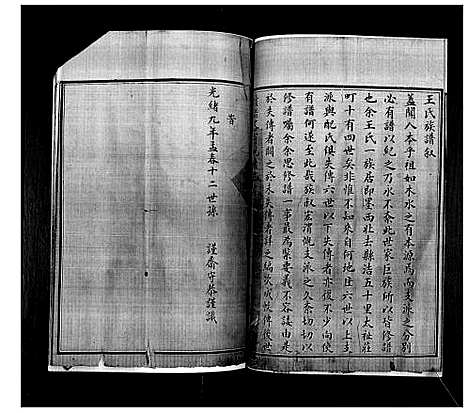 王氏族譜叙
蓋聞人本乎祖如木水之有本源焉而支派之分別
必有譜以紀之乃水不紊此世家巨族所以皆修譜
也余王氏一族居即墨西北去縣治五十里太祉莊
町十有四世矣非惟不知来自何地且六世以上支
派與配氏俱失傳六世以下失傳者亦復不少向使
有譜何遂至此哉族叔宏濱慨支派之久紊切切以
修譜嘱余余思修譜一事最為緊要義不容諉由是
於失傳者闕之於未失傳者詳之編次成帙傳後世
光緒九年孟春十二世孫 謹齋守恭謹識